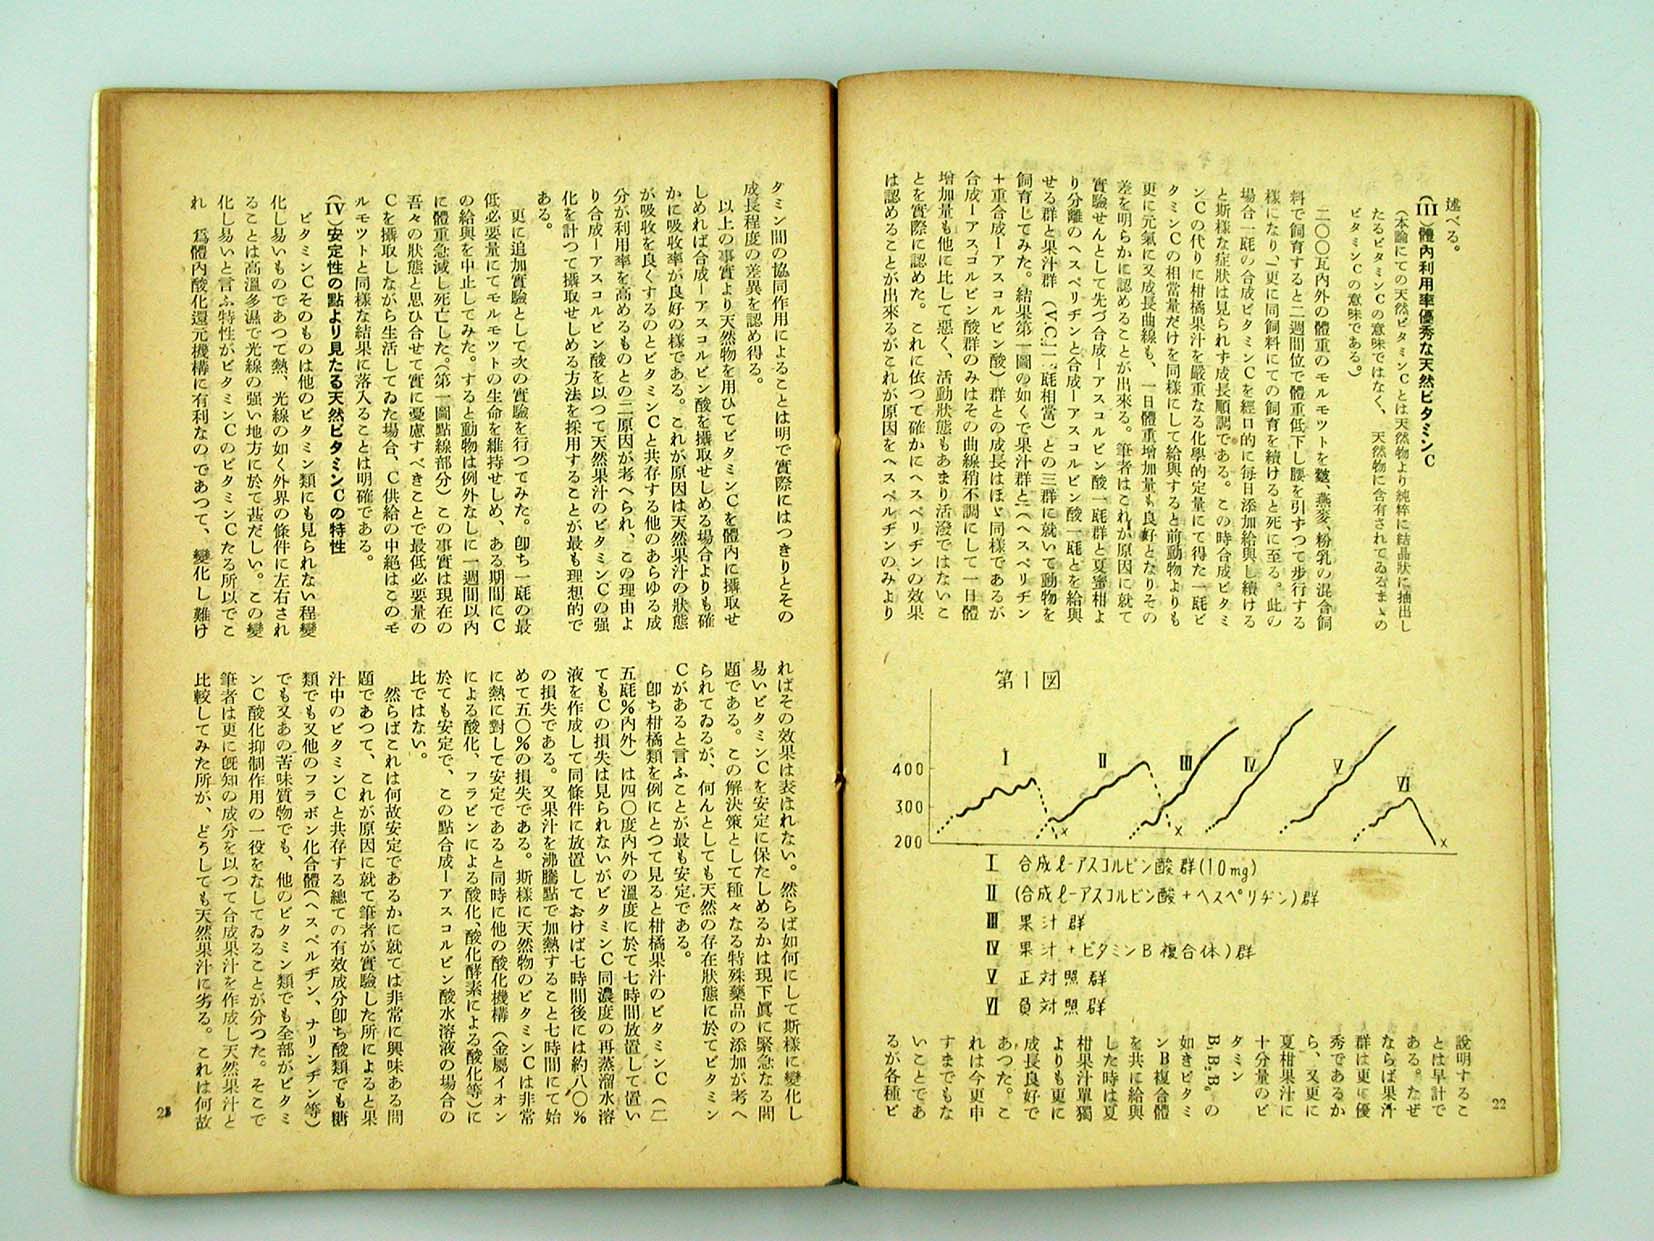 述べる。
(III)體內利用率優秀な天然ビタミンC
(本論にての天然ビタミンCとは天然物より純粹に結晶狀に抽出し
たるビタミンCの意味ではなく、天然物に含有されてゐるまゝの
ビタミンCの意味である。)
二〇〇瓦內外の體重のモルモツトを麩、燕麥、粉乳の混合飼
料で飼育すると二週間位で體重低下し腰を引ずつて步行する
樣になり、更に同飼料にての飼育を續けると死に至る。此の
場合一瓱の合成ビタミンCを經口的に每日添加給與し續ける
と斯樣な症狀は見られず成長順調である。この時合成ビタミ
ンCの代りに柑橘果汁を嚴重なる化學的定量にて得た一瓱ビ
タミンCの相當量だけを同樣にして給與すると前動物よりも
更に元氣に又成長曲線も、一日體重增加量も良好となりその
差を明らかに認めることが出來る。筆者はこれが原因に就て
實驗せんとして先づ合成l-アスコルビン酸一瓱群と夏蜜柑よ
り分離のヘスペリヂンと合成l-アスコルビン酸一瓱とを給與
せる群と果汁群(V.C,一瓱相當)との三群に就いて動物を
飼育してみた。結果第一圖の如くで果汁群と(ヘスペリヂン
+重合成l-アスコルビン酸)群との成長はほゞ同樣であるが
合成l-アスコルビン酸群のみはその曲線稍不調にして一日體
增加量も他に比して惡く、活動狀態もあまり活潑ではないこ
とを實際に認めた。これに依つて確かにヘスペリヂンの效果
は認めることが出來るがこれが原因をヘスペルヂンのみより
第1図
400
300
200
I
II
III
IV
V
VI
x
x
x
I 合成ℓ-アスコルビン酸群(10mg)
II (合成ℓ-アスコルビン酸+ヘスペリヂン)群
III 果汁群
IV 果汁+ビタミンB複合体)群
V 正対照群
VI 負対照群
說明するこ
とは早計で
ある。たぜ
ならば果汁
群は更に優
秀であるか
ら、又更に
夏柑果汁に
十分量のビ
タミン
B₁B₂B₆の
如きビタミ
ンB複合體
を共に給與
した時は夏
柑果汁單獨
よりも更に
成長良好で
あつた。こ
れは今更申
すまでもな
いことであ
るが各種ビ
22
タミン間の協同作用によることは明で實際にはつきりとその
成長程度の差異を認め得る。
以上の事實より天然物を用ひてビタミンCを體內に攝取せ
しめれば合成l-アスコルビン酸を攝取せしめる場合よりも確
かに吸收率が良好の樣である。これが原因は天然果汁の狀態
が吸收を良くするのとビタミンCと共存する他のあらゆる成
分が利用率を高めるものとの二原因が考へられ、この理由よ
り合成l-アスコルビン酸を以つて天然果汁のビタミンCの强
化を計つて攝取せしめる方法を採用することが最も理想的で
ある。
更に追加實驗として次の實驗を行つてみた。卽ち一瓱の最
低必要量にてモルモツトの生命を維持せしめ、ある期間にC
の給與を中止してみた。すると動物は例外なしに一週間以內
に體重急減し死亡した。(第一圖點線部分)この事實は現在の
吾々の狀態と思ひ合せて實に憂慮すべきことで最低必要量の
Cを攝取しながら生活してゐた場合、C供給の中絕はこのモ
ルモツトと同樣な結果に落入ることは明確である。
(IV)安定性の點より見たる天然ビタミンCの特性
ビタミンCそのものは他のビタミン類にも見られない程變
化し易いものであつて熱、光線の如く外界の條件に左右され
ることは高溫多濕で光線の强い地方に於て甚だしい。この變
化し易いと言ふ特性がビタミンCのビタミンCたる所以でこ
れ爲體內酸化還元機構に有利なのであつて、變化し難け
ればその效果は表はれない。然らば如何にして斯樣に變化し
易いビタミンCを安定に保たしめるかは現下眞に緊急なる問
題である。この解決策として種々なる特殊藥品の添加が考へ
られてゐるが、何んとしても天然の存在狀態に於てビタミン
Cがあると言ふことが最も安定である。
卽ち柑橘類を例にとつて見ると柑橘果汁のビタミンC(二
五瓱%內外)は四〇度內外の溫度に於て七時間放置して置い
てもCの損失は見られないがビタミンC同濃度の再蒸溜水溶
液を作成して同條件に放置しておけば七時間後には約八〇%
の損失である。又果汁を沸騰點で加熱すること七時間にて始
めて五〇%の損失である。斯樣に天然物のビタミンCは非常
に熱に對して安定であると同時に他の酸化機構(金屬イオン
による酸化、フラビンによる酸化、酸化酵素による酸化等)に
於ても安定で、この點合成l-アスコルビン酸水溶液の場合の
比ではない。
然らばこれは何故安定であるかに就ては非常に興味ある問
題であつて、これが原因に就て筆者が實驗した所によると果
汁中のビタミンCと共存する總ての有效成分卽ち酸類でも糖
類でも又他のフラボン化合體(ヘスペルヂン、ナリンヂン等)
でも又あの苦味質物でも、他のビタミン類でも全部がビタミ
ンC酸化抑制作用の一役をなしてゐることが分つた。そこで
筆者は更に旣知の成分を以つて合成果汁を作成し天然果汁と
比較してみた所が、どうしても天然果汁に劣る。これは何故
23